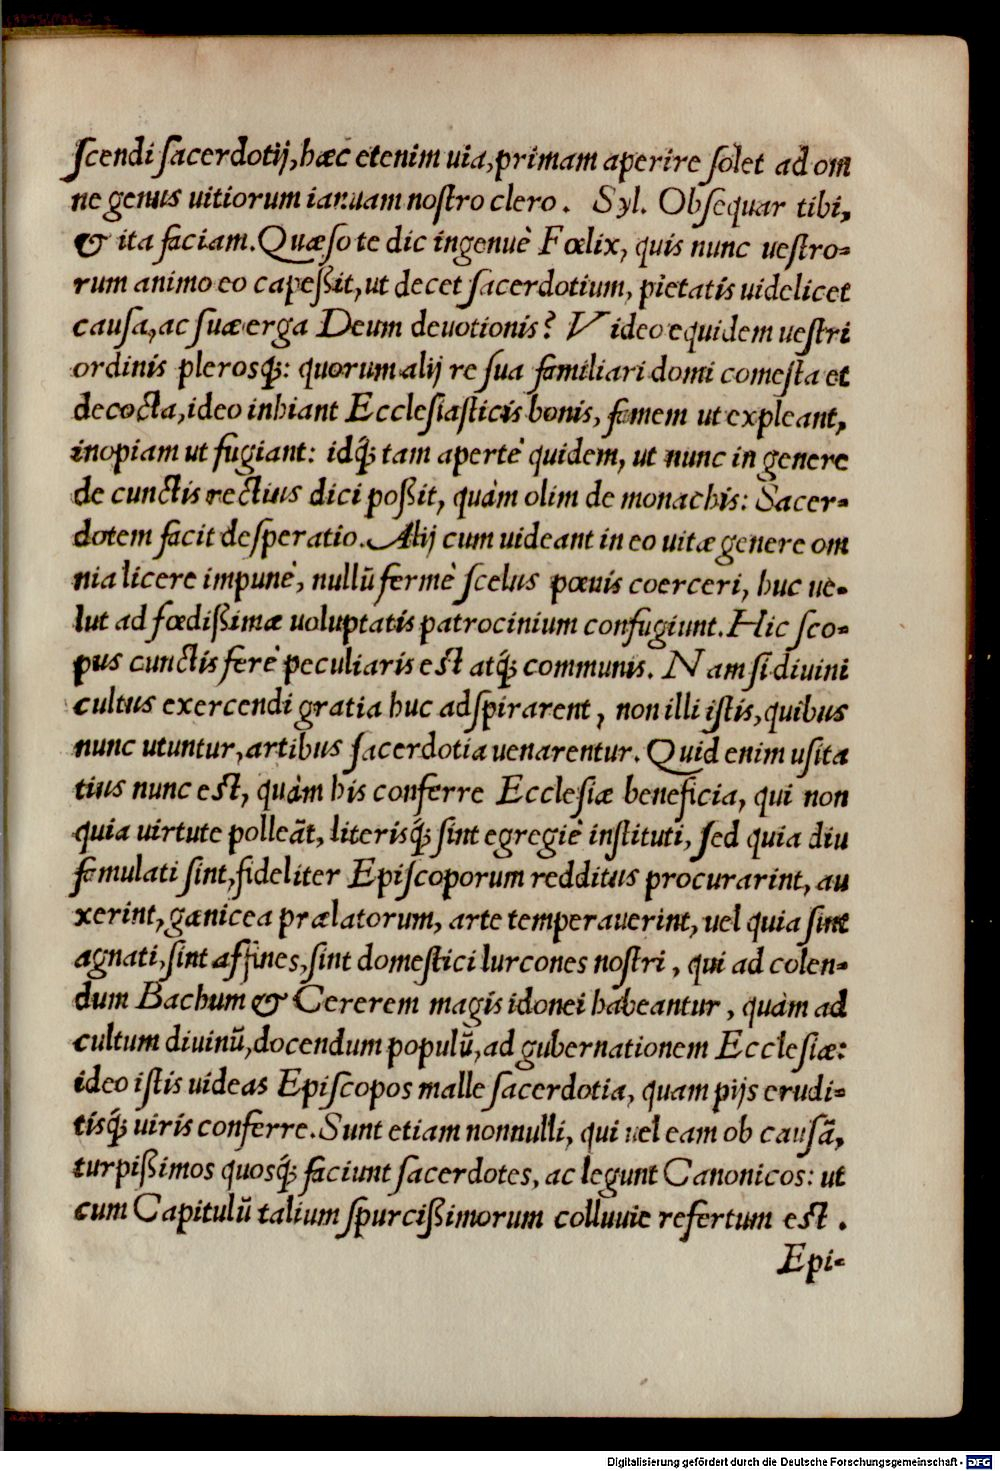 scendi sacerdotij, hæc etenim uia, primam aperire solet ad om
ne genus uitiorum ianuam nostro clero. Syl. Obsequar tibi,
& ita faciam. Quæso te dic ingenuè Fœlix, quis nunc uestro-
rum animo eo capeßit, ut decet sacerdotium, pietatis uidelicet
causa, ac suæ erga Deum deuotionis? Video equidem uestri
ordinis plerosq́; : quorum alij re sua familiari domi comesta et
decocta, ideo inhiant Ecclesiasticis bonis, famem ut expleant,
inopiam ut fugiant: idq́; tam apertè quidem, ut nunc in genere
de cunctis rectius dici poßit, quàm olim de monachis: Sacer-
dotem facit desperatio. Alij cum uideant in eo uitæ genere om
nia licere impunè, nullũ fermè scelus pœnis coerceri, huc ue-
lut ad fœdißimæ uoluptatis patrocinium confugiunt. Hic sco-
pus cunctis ferè peculiaris est atq́; communis. Nam si diuini
cultus exercendi gratia huc adspirarent, non illi istis, quibus
nunc utuntur, artibus sacerdotia uenarentur. Quid enim usita
tius nunc est, quàm his conferre Ecclesiæ beneficia, qui non
quia uirtute polleãt, literisq́; sint egregiè instituti, sed quia diu
famulati sint, fideliter Episcoporum redditus procurarint, au
xerint, gænicea prælatorum, arte temperauerint, uel quia sint
agnati, sint affines, sint domestici lurcones nostri, qui ad colen-
dum Bachum & Cererem magis idonei habeantur, quàm ad
cultum diuinũ, docendum populũ, ad gubernationem Ecclesiæ:
ideo istis uideas Episcopos malle sacerdotia, quam pijs erudi-
tisq́; uiris conferre. Sunt etiam nonnulli, qui uel eam ob causã,
turpißimos quosq́; faciunt sacerdotes, ac legunt Canonicos: ut
cum Capitulũ talium spurcißimorum colluuie refertum est.
Epi-
Digitalisierung gefördert durch die Deutsche Forschungsgemeinschaft - DFG